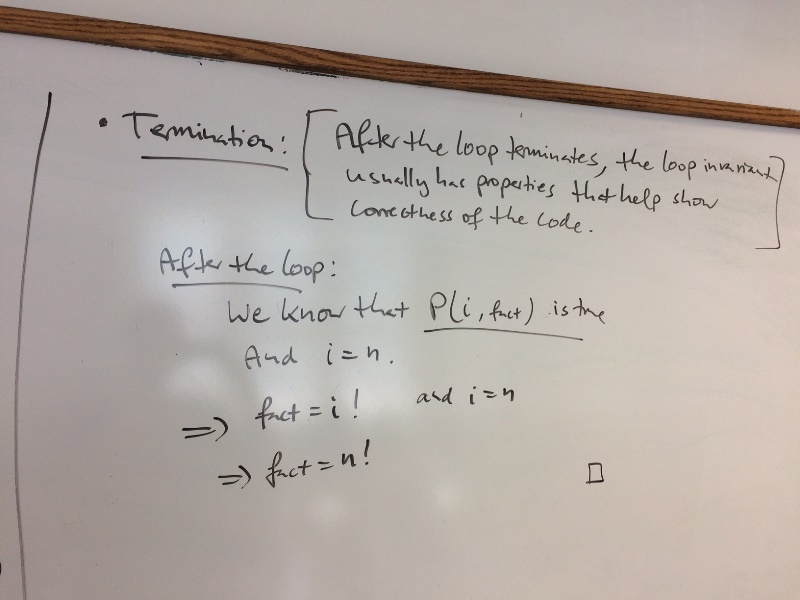 • Termination: [After the loop terminates, the loop invariant
usually has properties that help show
correctness of the code.]
After the loop:
We know that P(i, fact) is true
And i = n.
⇒ fact = i! and i = n
⇒ fact = n! □